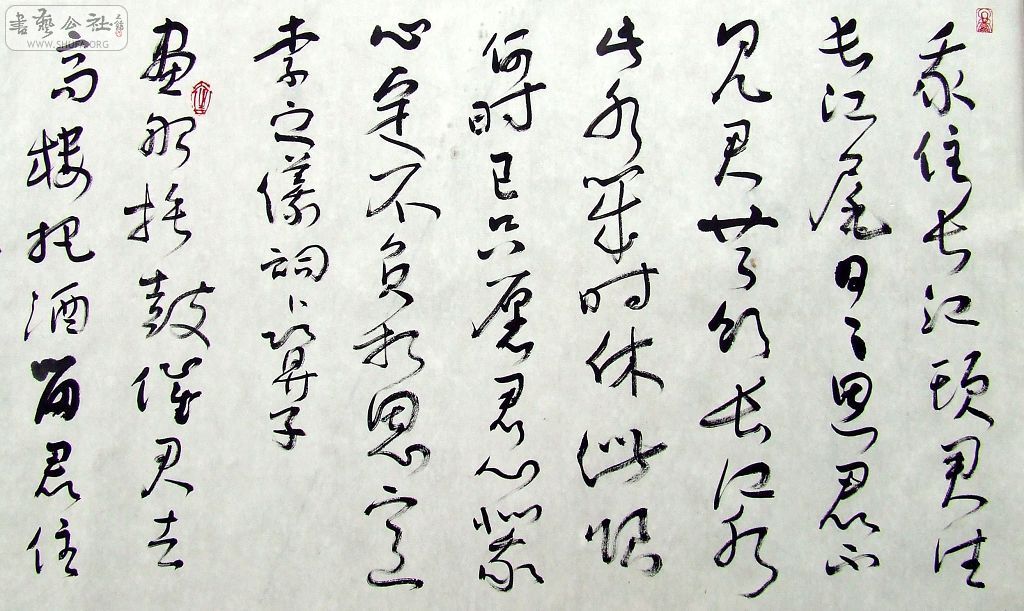 我住长江頭君住
长江尾日日思君不
见君共饮长江水
此水幾时休此恨
何时已只愿君心似我
心定不负相思意
李之儀詞卜算子
畫船捶鼓催君去
高楼把酒留君住
書藝公社
WWW.SHUFA.ORG